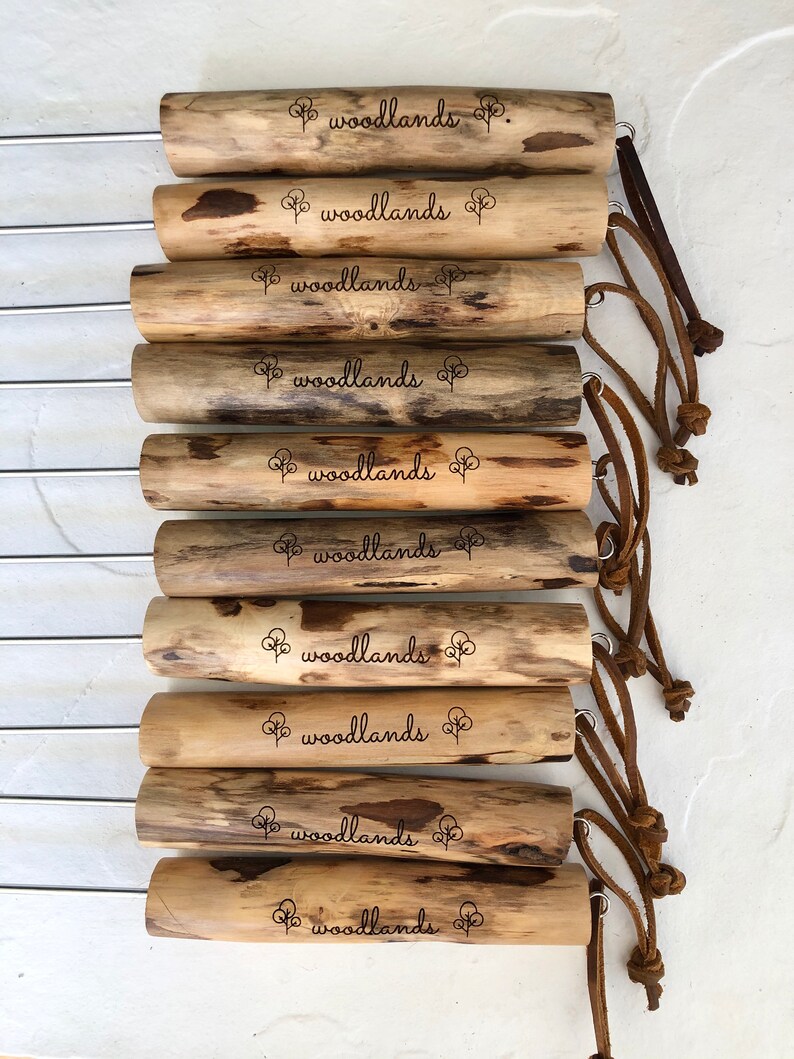 woodlands
woodlands
woodlands
woodlands
woodlands
woodlands
woodlands
woodlands
woodlands
woodlands